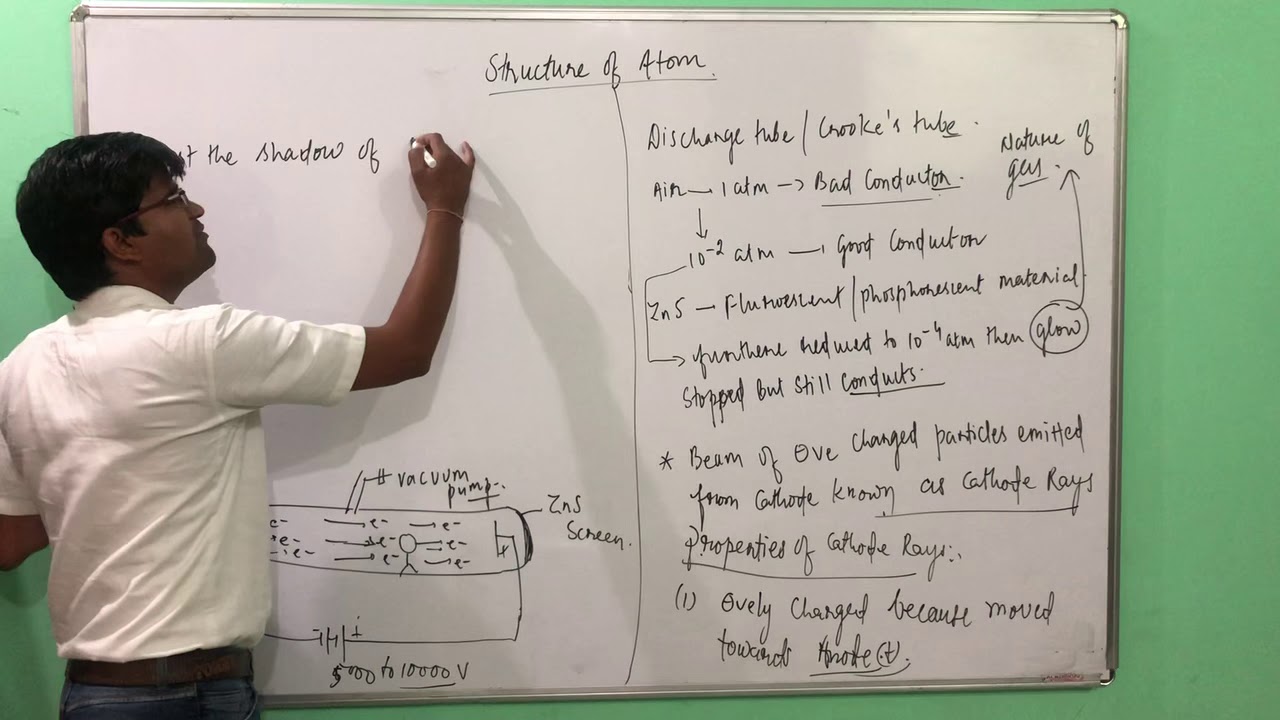 Structure of Atom.
the shadow of
Discharge tube / Crooke's tube.
Nature of
gas.
Air → 1 atm → Bad Conductor.
↓
10⁻² atm → Good Conductor
ZnS → Flurorescent / phosphorescent material
→ furthere reduced to 10⁻⁴ atm then glow
stopped but still conducts.
* Beam of ⊖ve charged particles emitted
from Cathode known as Cathode Rays
Properties of Cathode Rays:.
(1) ⊖vely Charged because moved
towards Anode (+).
vacuum
pump
ZnS
Screen.
e- → e- → e-
e- → e- → e-
e- → e- → e-
+
+
5000 to 10000 V